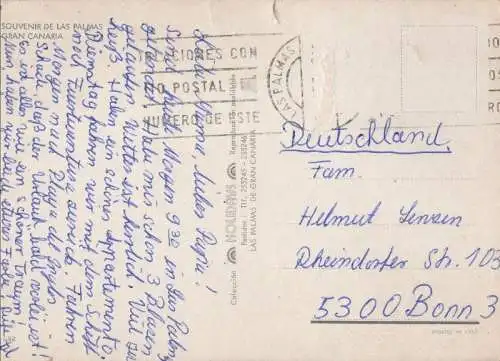 SOUVENIR DE LAS PALMAS
GRAN CANARIA
Liebe Mama, lieber Papa!
Sind heut Morgen 9.30 in Las Palmas
gelandet. Habe mir schon 3 Blasen
gelaufen. Wetter ist herrlich! Viel zu
heiß. Haben ein schönes Appartemento.
Dienstag fahren wir mit dem Schiff
nach Fuerteventura zurück. Fahren
Morgen nach Playa del Ingles
Schade, daß der Urlaub bald vorbei ist!
Es ist alles wie ein schöner Traum!
Nun haben wir bald
Colección HOLIDAYS Reproducción prohibida
Tlf.: 253245 - 253246
LAS PALMAS DE GRAN CANARIA
CIONES CON
O POSTAL EL
NUMERO DE ESTE
LAS PALMAS
Deutschland
Fam.
Helmut Jensen
Rheindorfer Str. 103
5300 Bonn 3